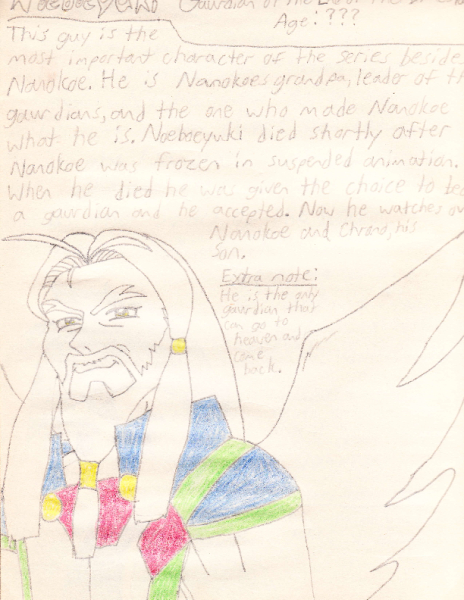 Noebocyuki Gaurdian of the
Age: ???
This guy is the
most important character of the series besides
Nanokoe. He is Nanokoes grandpa, leader of th
gaurdians, and the one who made Nanokoe
what he is. Noebocyuki died shortly after
Nanokoe was frozen in suspended animation.
When he died he was given the choice to be
a gaurdian and he accepted. Now he watches ov
Nanokoe and Chrono, his
son.
Extra note:
He is the only
gaurdian that
can go to
heaven and
come
back.